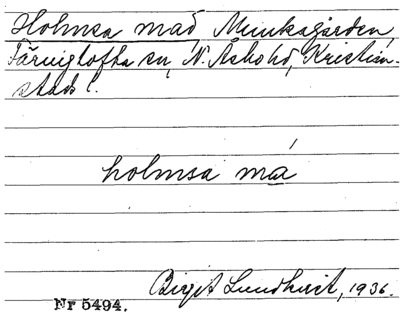 Holmsa mad, Munkagården,
Färingtofta sn, N. Åsbo hd, Kristian-
stads l.
holmsa má
Birgit Lundkvist, 1936.
Nr 5494.